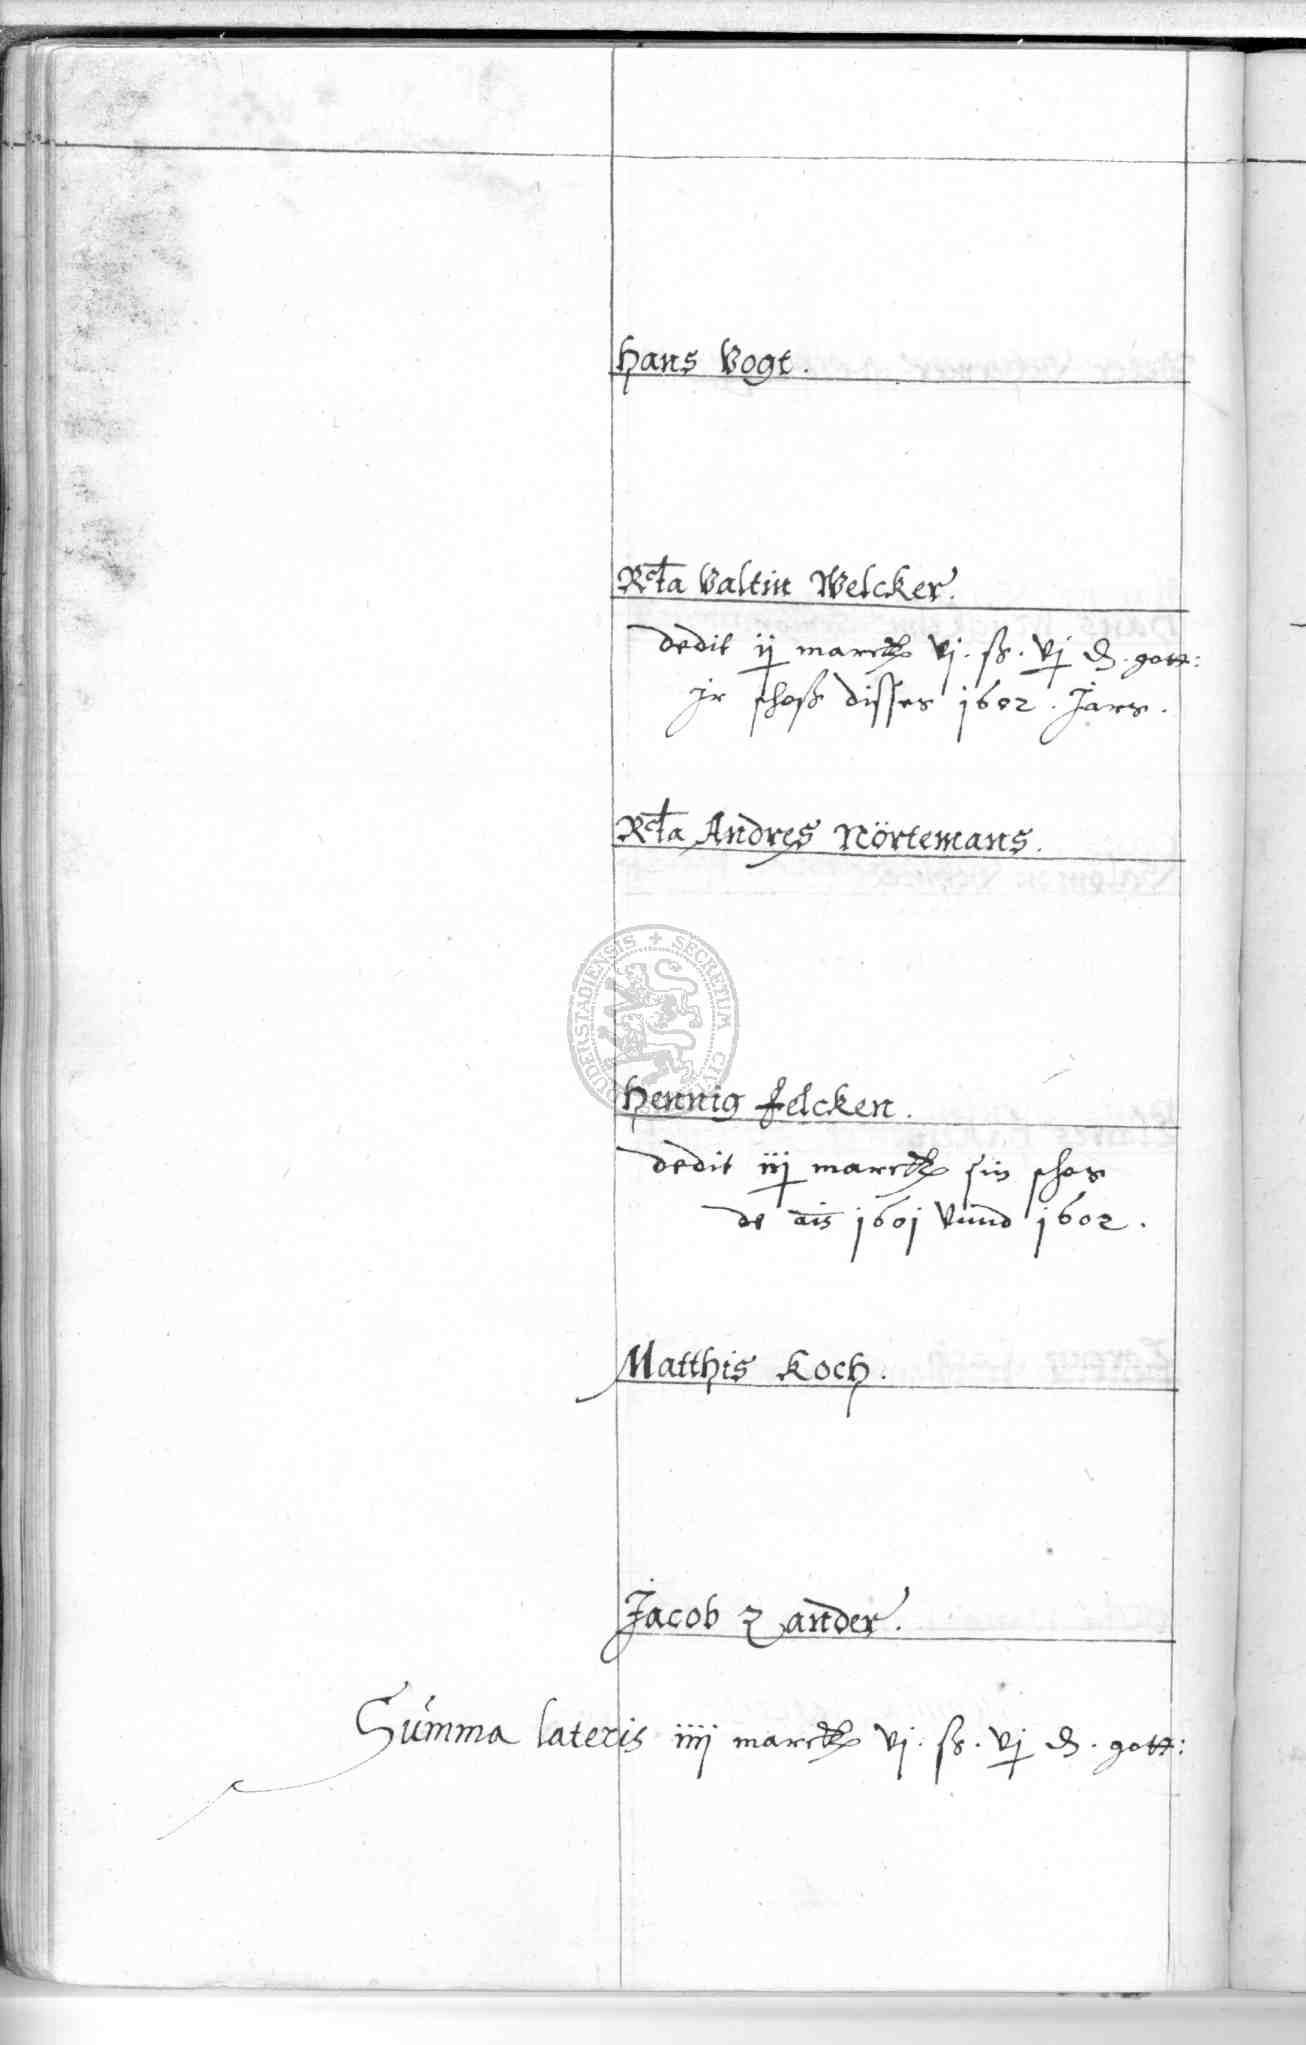 Hans Vogt.
Rcta Valtin Welcker.
dedit ij marck vj. ß. vj ₰. gott:
jr schoß disses 1602. Jars.
Rcta Andres Nörtemans.
Hennig Felcken.
dedit iij marck sin schos
de ais 1601 vnnd 1602.
Matthis Koch.
Jacob Zander.
Summa lateris iiij marck vj. ß. vj ₰. gott:
DUDERSTADIENSIS + SECRETUM